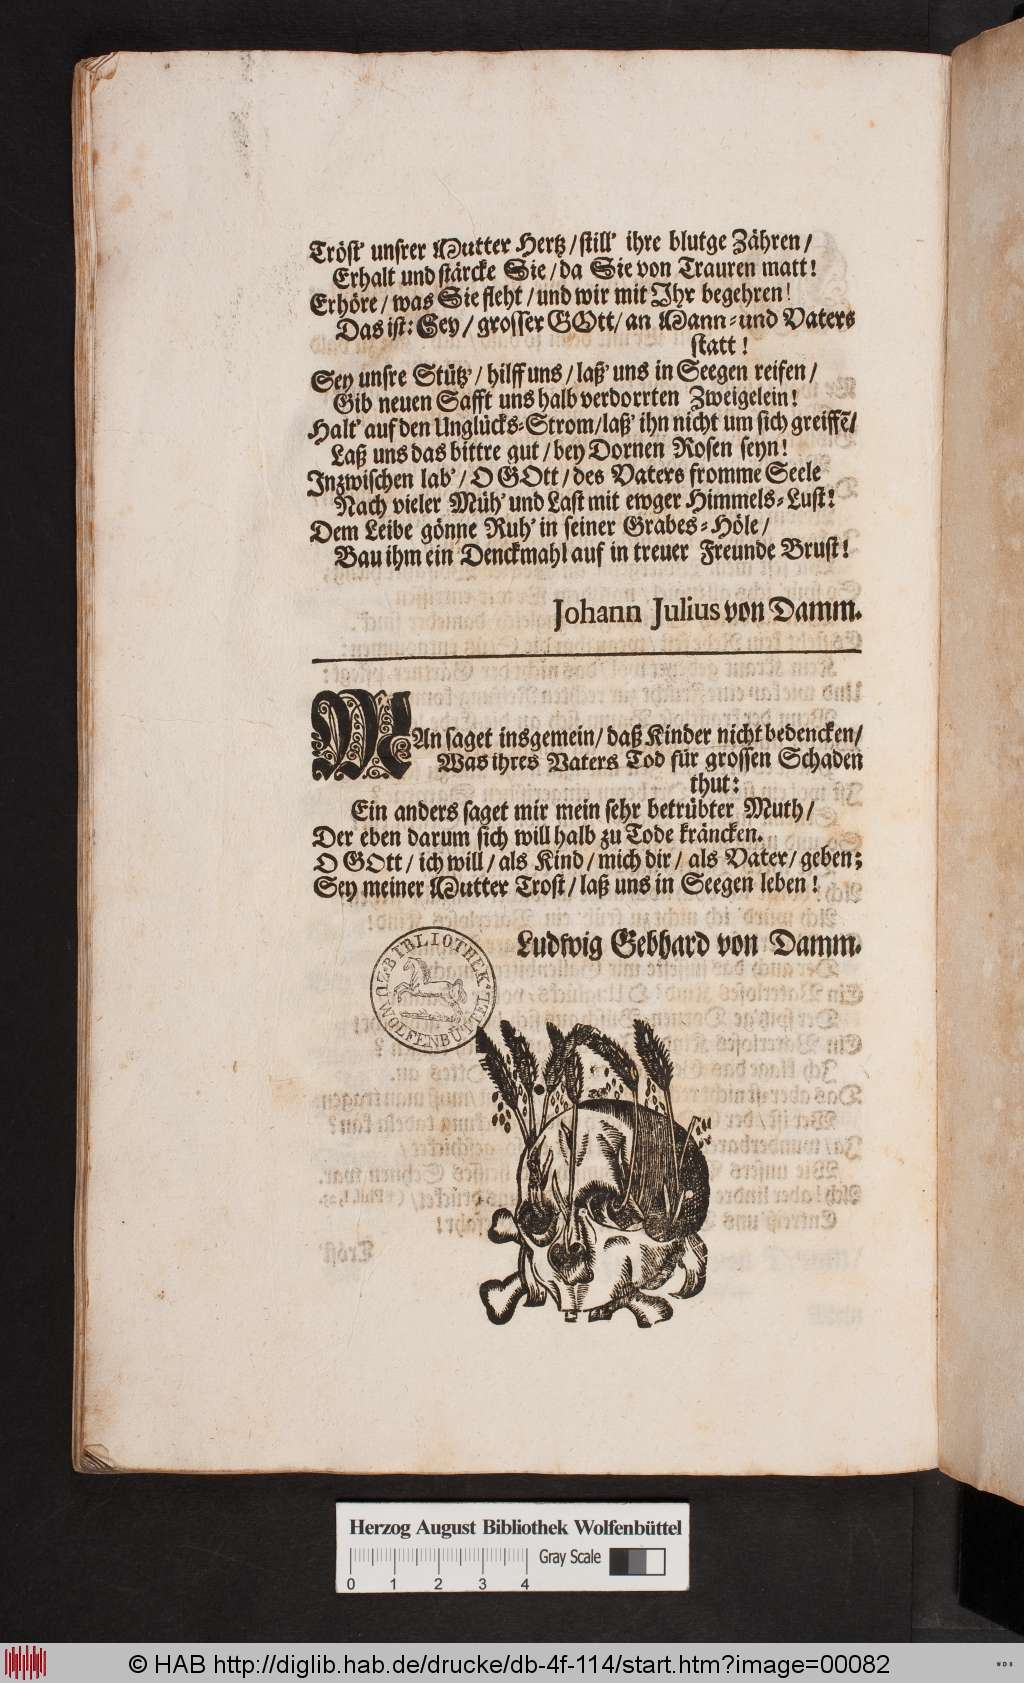 Tröst' unsrer Mutter Hertz/ still' ihre blutge Zähren/
Erhalt und stärcke Sie/ da Sie von Trauren matt!
Erhöre/ was Sie fleht/ und wir mit Ihr begehren!
Das ist: Sey/ grosser GOtt/ an Mann- und Vaters
statt!
Sey unsre Stütz'/ hilff uns/ laß' uns in Seegen reisen/
Gib neuen Safft uns halb verdorrten Zweigelein!
Halt' auf den Unglücks-Strom/ laß' ihn nicht um sich greiffē/
Laß uns das bittre gut/ bey Dornen Rosen seyn!
Inzwischen lab'/ O GOtt/ des Vaters fromme Seele
Nach vieler Müh' und Last mit ewger Himmels-Lust!
Dem Leibe gönne Ruh' in seiner Grabes-Höle/
Bau ihm ein Denckmahl auf in treuer Freunde Brust!
Johann Julius von Damm.
MAn saget insgemein/ daß Kinder nicht bedencken/
Was ihres Vaters Tod für grossen Schaden
thut:
Ein anders saget mir mein sehr betrübter Muth/
Der eben darum sich will halb zu Tode kräncken.
O GOtt/ ich will/ als Kind/ mich dir/ als Vater/ geben;
Sey meiner Mutter Trost/ laß uns in Seegen leben!
Ludwig Gebhard von Damm.
BIBLIOTHEK
ZU
WOLFENBÜTTEL
Herzog August Bibliothek Wolfenbüttel
Gray Scale
0 1 2 3 4
© HAB http://diglib.hab.de/drucke/db-4f-114/start.htm?image=00082